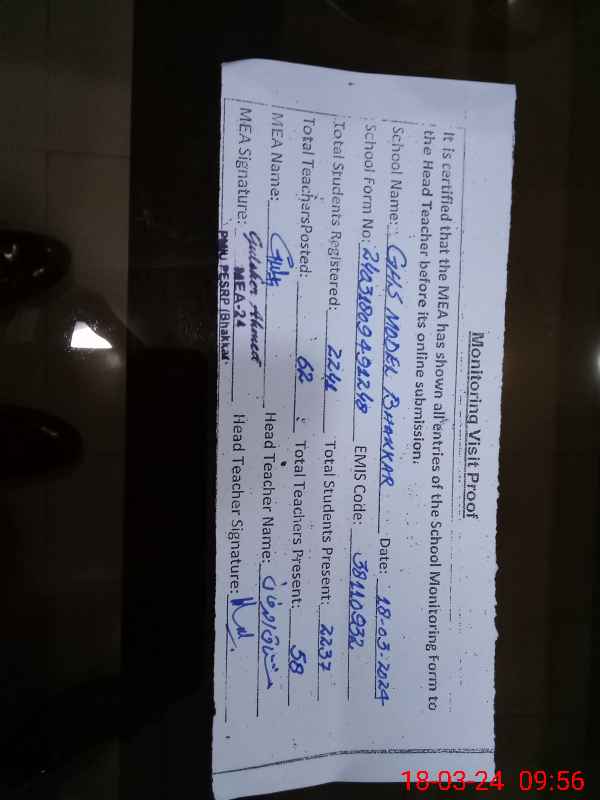 Monitoring Visit Proof
It is certified that the MEA has shown all entries of the School Monitoring Form to
the Head Teacher before its online submission.
School Name: GHS MODEL BHAKKAR Date: 18-03-2024
School Form No: EMIS Code: 38110932
Total Students Registered: 2241 Total Students Present: 2237
Total TeachersPosted: 62 Total Teachers Present: 58
MEA Name: Head Teacher Name:
MEA Signature: Head Teacher Signature:
Ahmed
MEA-24
PMIU PESRP (Bhakkar
18-03-24 09:56